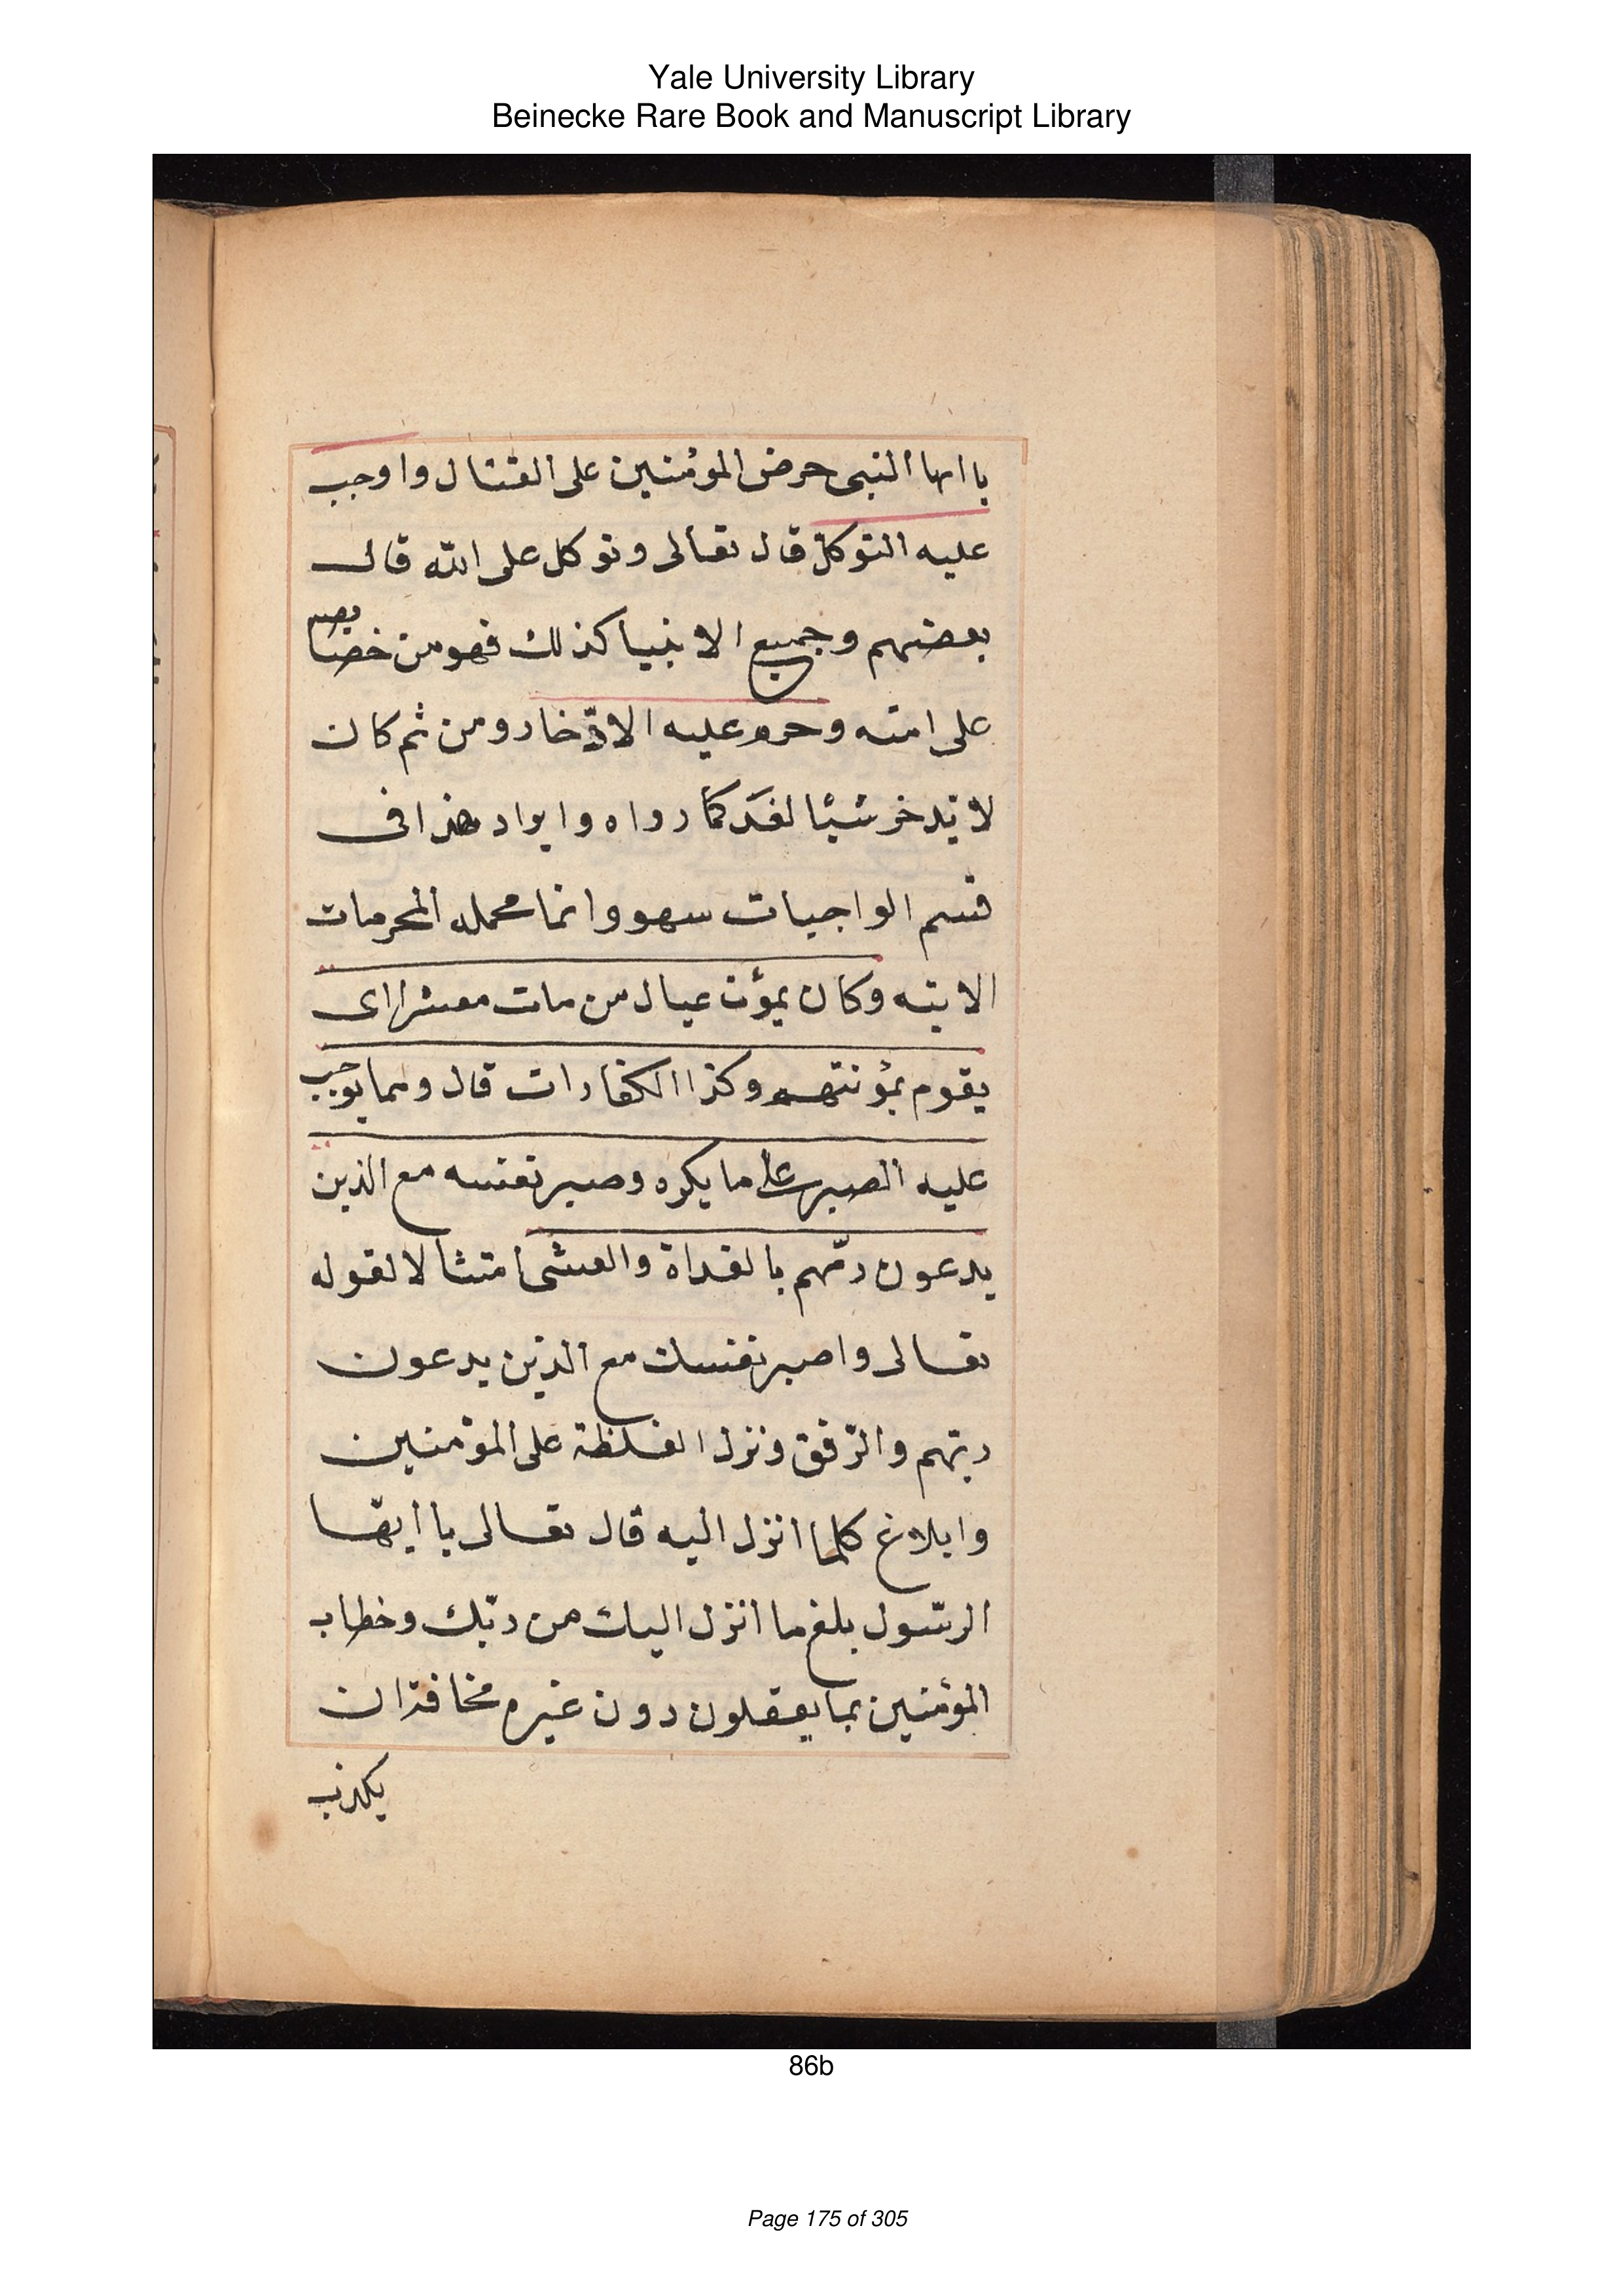 Yale University Library
Beinecke Rare Book and Manuscript Library
يا ايها النبى حرض المؤمنين على القتال واوجب
عليه التوكل قال تعالى وتوكل على الله قال
بعضهم وجميع الانبيا كذلك فهو من خصايصه
على امته وحرم عليه الادّخار ومن ثم كان
لا يدخر شيئا لغد كما رواه وايراد هذا فى
قسم الواجبات سهو وانما محمله المحرمات
الاتيه وكان يمؤن عيال من مات معسرا اى
يقوم بمؤنتهم وكذا الكفارات قال ومما يوجب
عليه الصبر على ما يكره وصبر نفسه مع الذين
يدعون ربّهم بالغداة والعشى امتثالا لقوله
تعالى واصبر نفسك مع الذين يدعون
ربّهم والرّفق ونزل الغلظة على المؤمنين
وابلاغ كلما انزل اليه قال تعالى يا أيّها
الرسّول بلغ ما انزل اليك من ربّك وخطاب
المؤمنين بما يعقلون دون غيره مخافة ان
يكذب
86b
Page 175 of 305